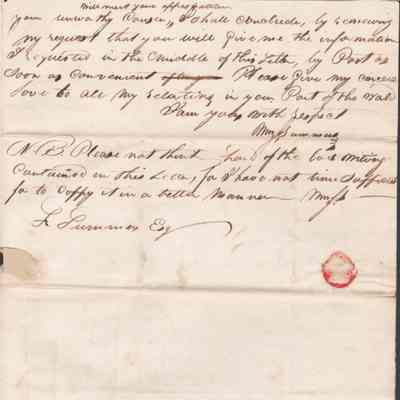 will meet your approbation
your unworthy Cousin, I shall Conclude, by renewing
my request that you will give me the information
I requested in the middle of this letter, by Post as
soon as convenient Please give my sincere
love to all my relations in your Part of the World
I am yours with respect
Wm Summers
N.B. Please not think hard of the bad writing
Contained in this Letter, for I have not time sufficient
for to Coppy it in a better manner Wm S
F Summers Esq